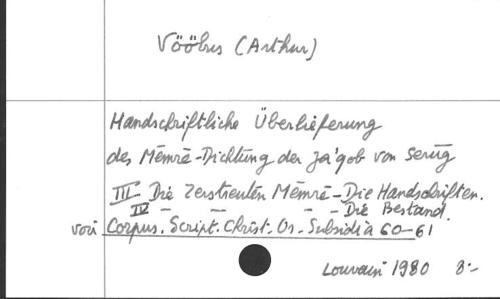 Vööbus (Arthur)
Handschriftliche Überlieferung
der Mēmrē-Dichtung der Ja'qob von Serūg
III Die Zerstreuten Mēmrē - Die Handschriften.
IV - - - Die Bestand.
voir Corpus. Script. Christ. Or. Subsidia 60-61
Louvain 1980 8:-